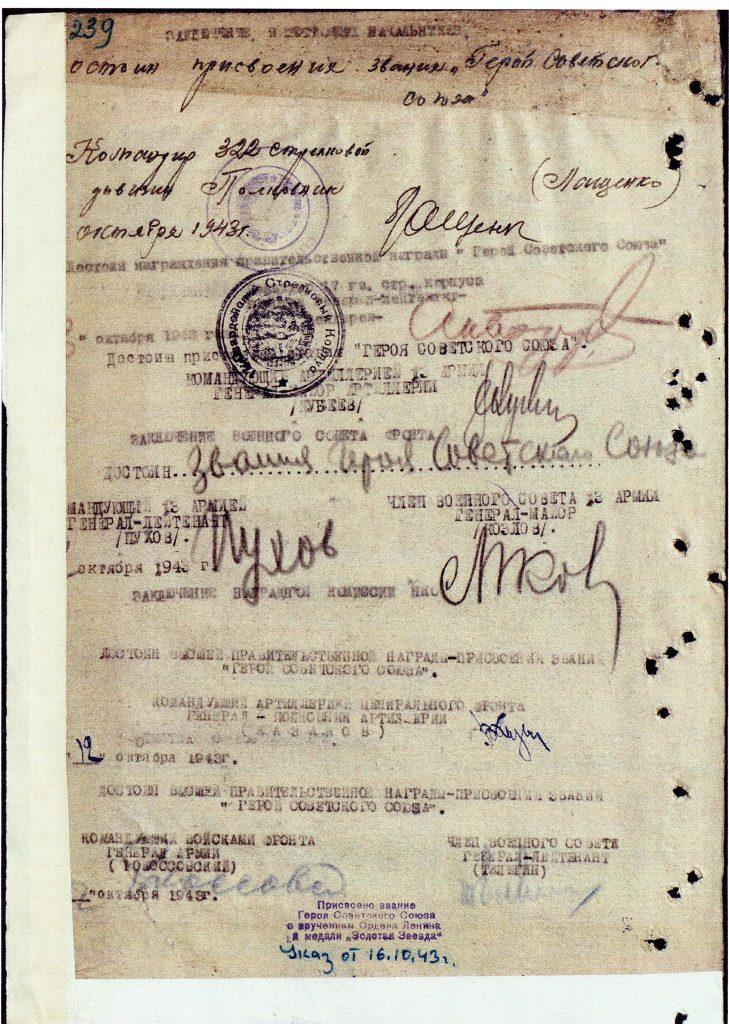 239
ЗАКЛЮЧЕНИЕ НАЧАЛЬНИКОВ
остоин присвоения звания „Герой Советског
союза"
Командир 322 стрелковой
дивизии Полковник (Лащенко)
Лащенк
октября 1943г.
Достоин награждения правительственной награды " Герой Советского Союза"
17 гв. стр. корпуса
генерал-лейтенант
" октября 1943 г
Достоин присв "ГЕРОЯ СОВЕТСКОГО СОЮЗА".
Гвардейский Стрелковый Корпус
КОМАНДУЮЩИЙ АРТИЛЛЕРИЕЙ 13 АРМИИ
ГЕНЕРАЛ МАЙОР АРТИЛЛЕРИИ
/КУБЕЕВ/
ЗАКЛЮЧЕНИЕ ВОЕННОГО СОВЕТА ФРОНТА
ДОСТОИН звания Героя Советского Союза
МАНДУЮЩИЙ 13 АРМИЕЙ ЧЛЕН ВОЕННОГО СОВЕТА 13 АРМИИ
ГЕНЕРАЛ-ЛЕЙТЕНАНТ ГЕНЕРАЛ-МАЙОР
/ПУХОВ/. /КОЗЛОВ/.
Пухов
октября 1943 г.
ЗАКЛЮЧЕНИЕ НАГРАДНОЙ КОМИССИИ НКО
ДОСТОИН ВЫСШЕЙ ПРАВИТЕЛЬСТВЕННОЙ НАГРАДЫ-ПРИСВОЕНИЯ ЗВАНИЯ
"ГЕРОЙ СОВЕТСКОГО СОЮЗА".
КОМАНДУЮЩИЙ АРТИЛЛЕРИЕЙ ЦЕНТРАЛЬНОГО ФРОНТА
ГЕНЕРАЛ - ПОЛКОВНИК АРТИЛЛЕРИИ
( К А З А К О В )
"12" октября 1943г.
ДОСТОИН ВЫСШЕЙ ПРАВИТЕЛЬСТВЕННОЙ НАГРАДЫ-ПРИСВОЕНИЯ ЗВАНИЯ
" ГЕРОЙ СОВЕТСКОГО СОЮЗА".
КОМАНДУЮЩИЙ ВОЙСКАМИ ФРОНТА ЧЛЕН ВОЕННОГО СОВЕТА
ГЕНЕРАЛ АРМИИ ГЕНЕРАЛ-ЛЕЙТЕНАНТ
( РОКОССОВСКИЙ) (ТЕЛЕГИН)
"октября 1943г.
Присвоено звание
Героя Советского Союза
с вручением Ордена Ленина
и медали „Золотая Звезда"
Указ от 16.10.43г.